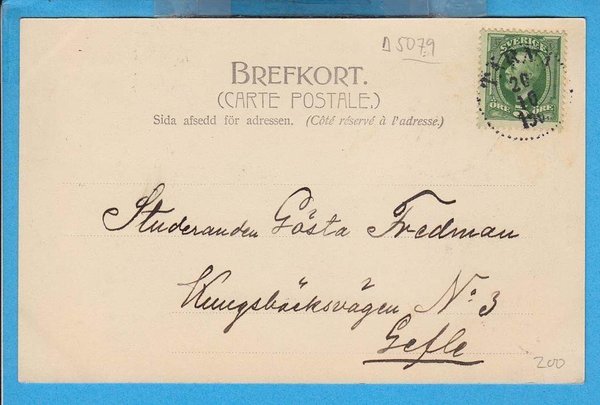 D 5079
SVERIGE
BREFKORT.
(CARTE POSTALE.)
ÖRE ÖRE
20
10
Sida afsedd för adressen. (Côté réservé à l'adresse.)
Studeranden Gösta Fredman
Kungsbäcksvägen No. 3
Gefle
200